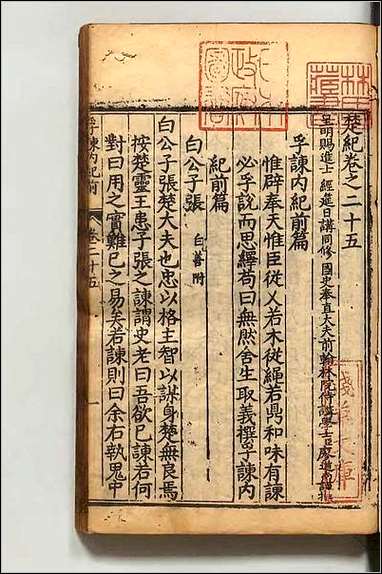 楚紀卷之二十五
皇明賜進士 經筵日講同修 國史奉直大夫前翰林院侍講學士臣廖道南謹撰
孚諫內紀前篇
惟辟奉天惟臣從乂若木從繩若鼎和味有諫
必孚說而思繹苟曰無然舍生取義撰孚諫內
紀前篇
白公子張 白善附
白公子張楚大夫也忠以格主智以謀身楚無良焉
按楚靈王患子張之諫謂史老曰吾欲已諫若何
對曰用之實難已之易矣若諫則曰余右執鬼中
孚諫內紀前 卷二十五